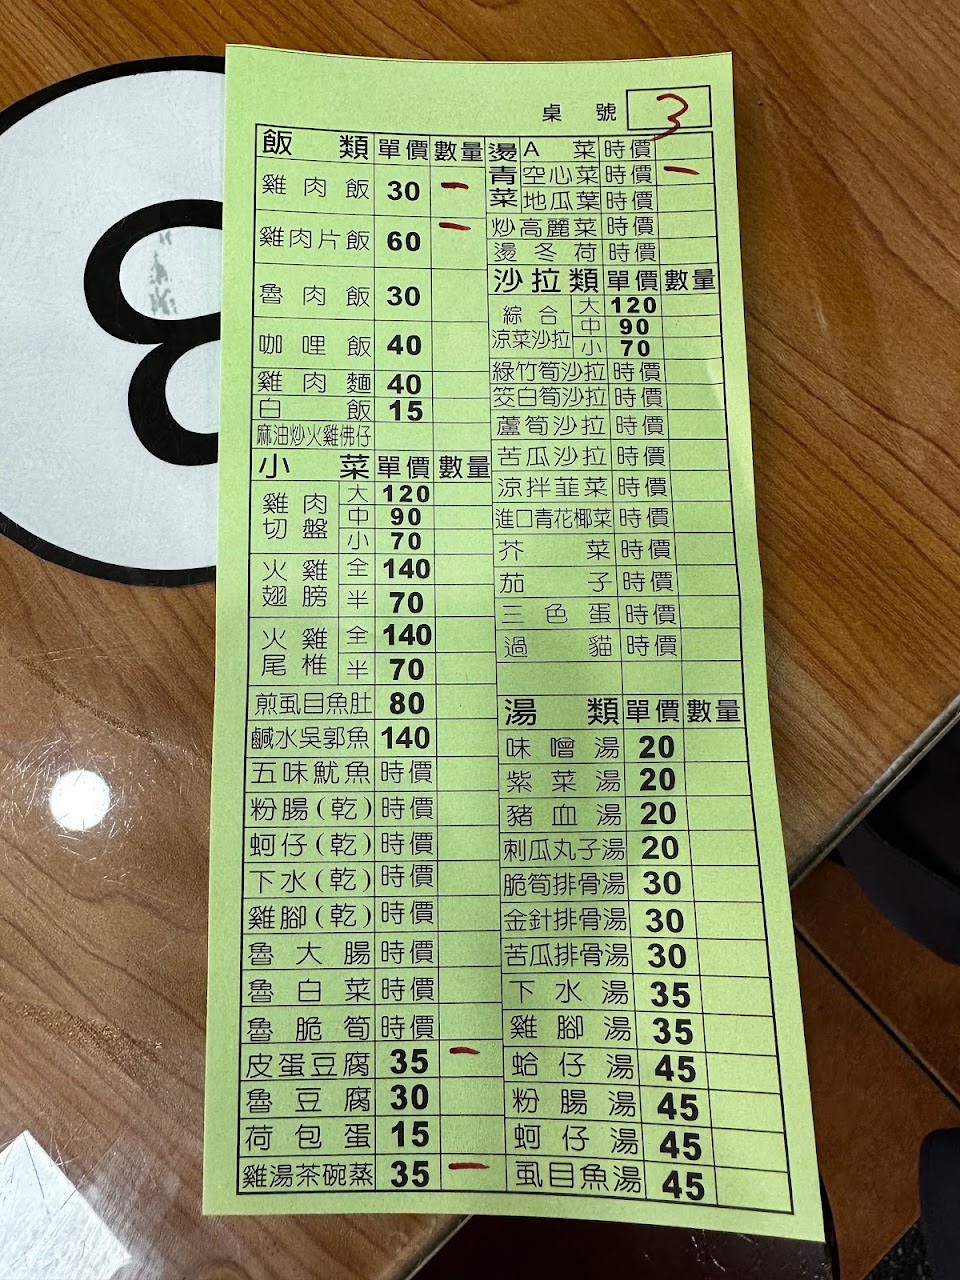 8
桌號 3
飯類 單價 數量
雞肉飯 30 一
雞肉片飯 60 一
魯肉飯 30
咖哩飯 40
雞肉麵 40
白飯 15
麻油炒火雞佛仔
小菜 單價 數量
雞肉切盤 大 120
中 90
小 70
火雞翅膀 全 140
半 70
火雞尾椎 全 140
半 70
煎虱目魚肚 80
鹹水吳郭魚 140
五味魷魚 時價
粉腸(乾) 時價
蚵仔(乾) 時價
下水(乾) 時價
雞腳(乾) 時價
魯大腸 時價
魯白菜 時價
魯脆筍 時價
皮蛋豆腐 35 一
魯豆腐 30
荷包蛋 15
雞湯茶碗蒸 35 一
燙青菜 A菜 時價
空心菜 時價 一
地瓜葉 時價
炒高麗菜 時價
燙冬荷 時價
沙拉類 單價 數量
綜合涼菜沙拉 大 120
中 90
小 70
綠竹筍沙拉 時價
筊白筍沙拉 時價
蘆筍沙拉 時價
苦瓜沙拉 時價
涼拌韭菜 時價
進口青花椰菜 時價
芥菜 時價
茄子 時價
三色蛋 時價
過貓 時價
湯類 單價 數量
味噌湯 20
紫菜湯 20
豬血湯 20
刺瓜丸子湯 20
脆筍排骨湯 30
金針排骨湯 30
苦瓜排骨湯 30
下水湯 35
雞腳湯 35
蛤仔湯 45
粉腸湯 45
蚵仔湯 45
虱目魚湯 45